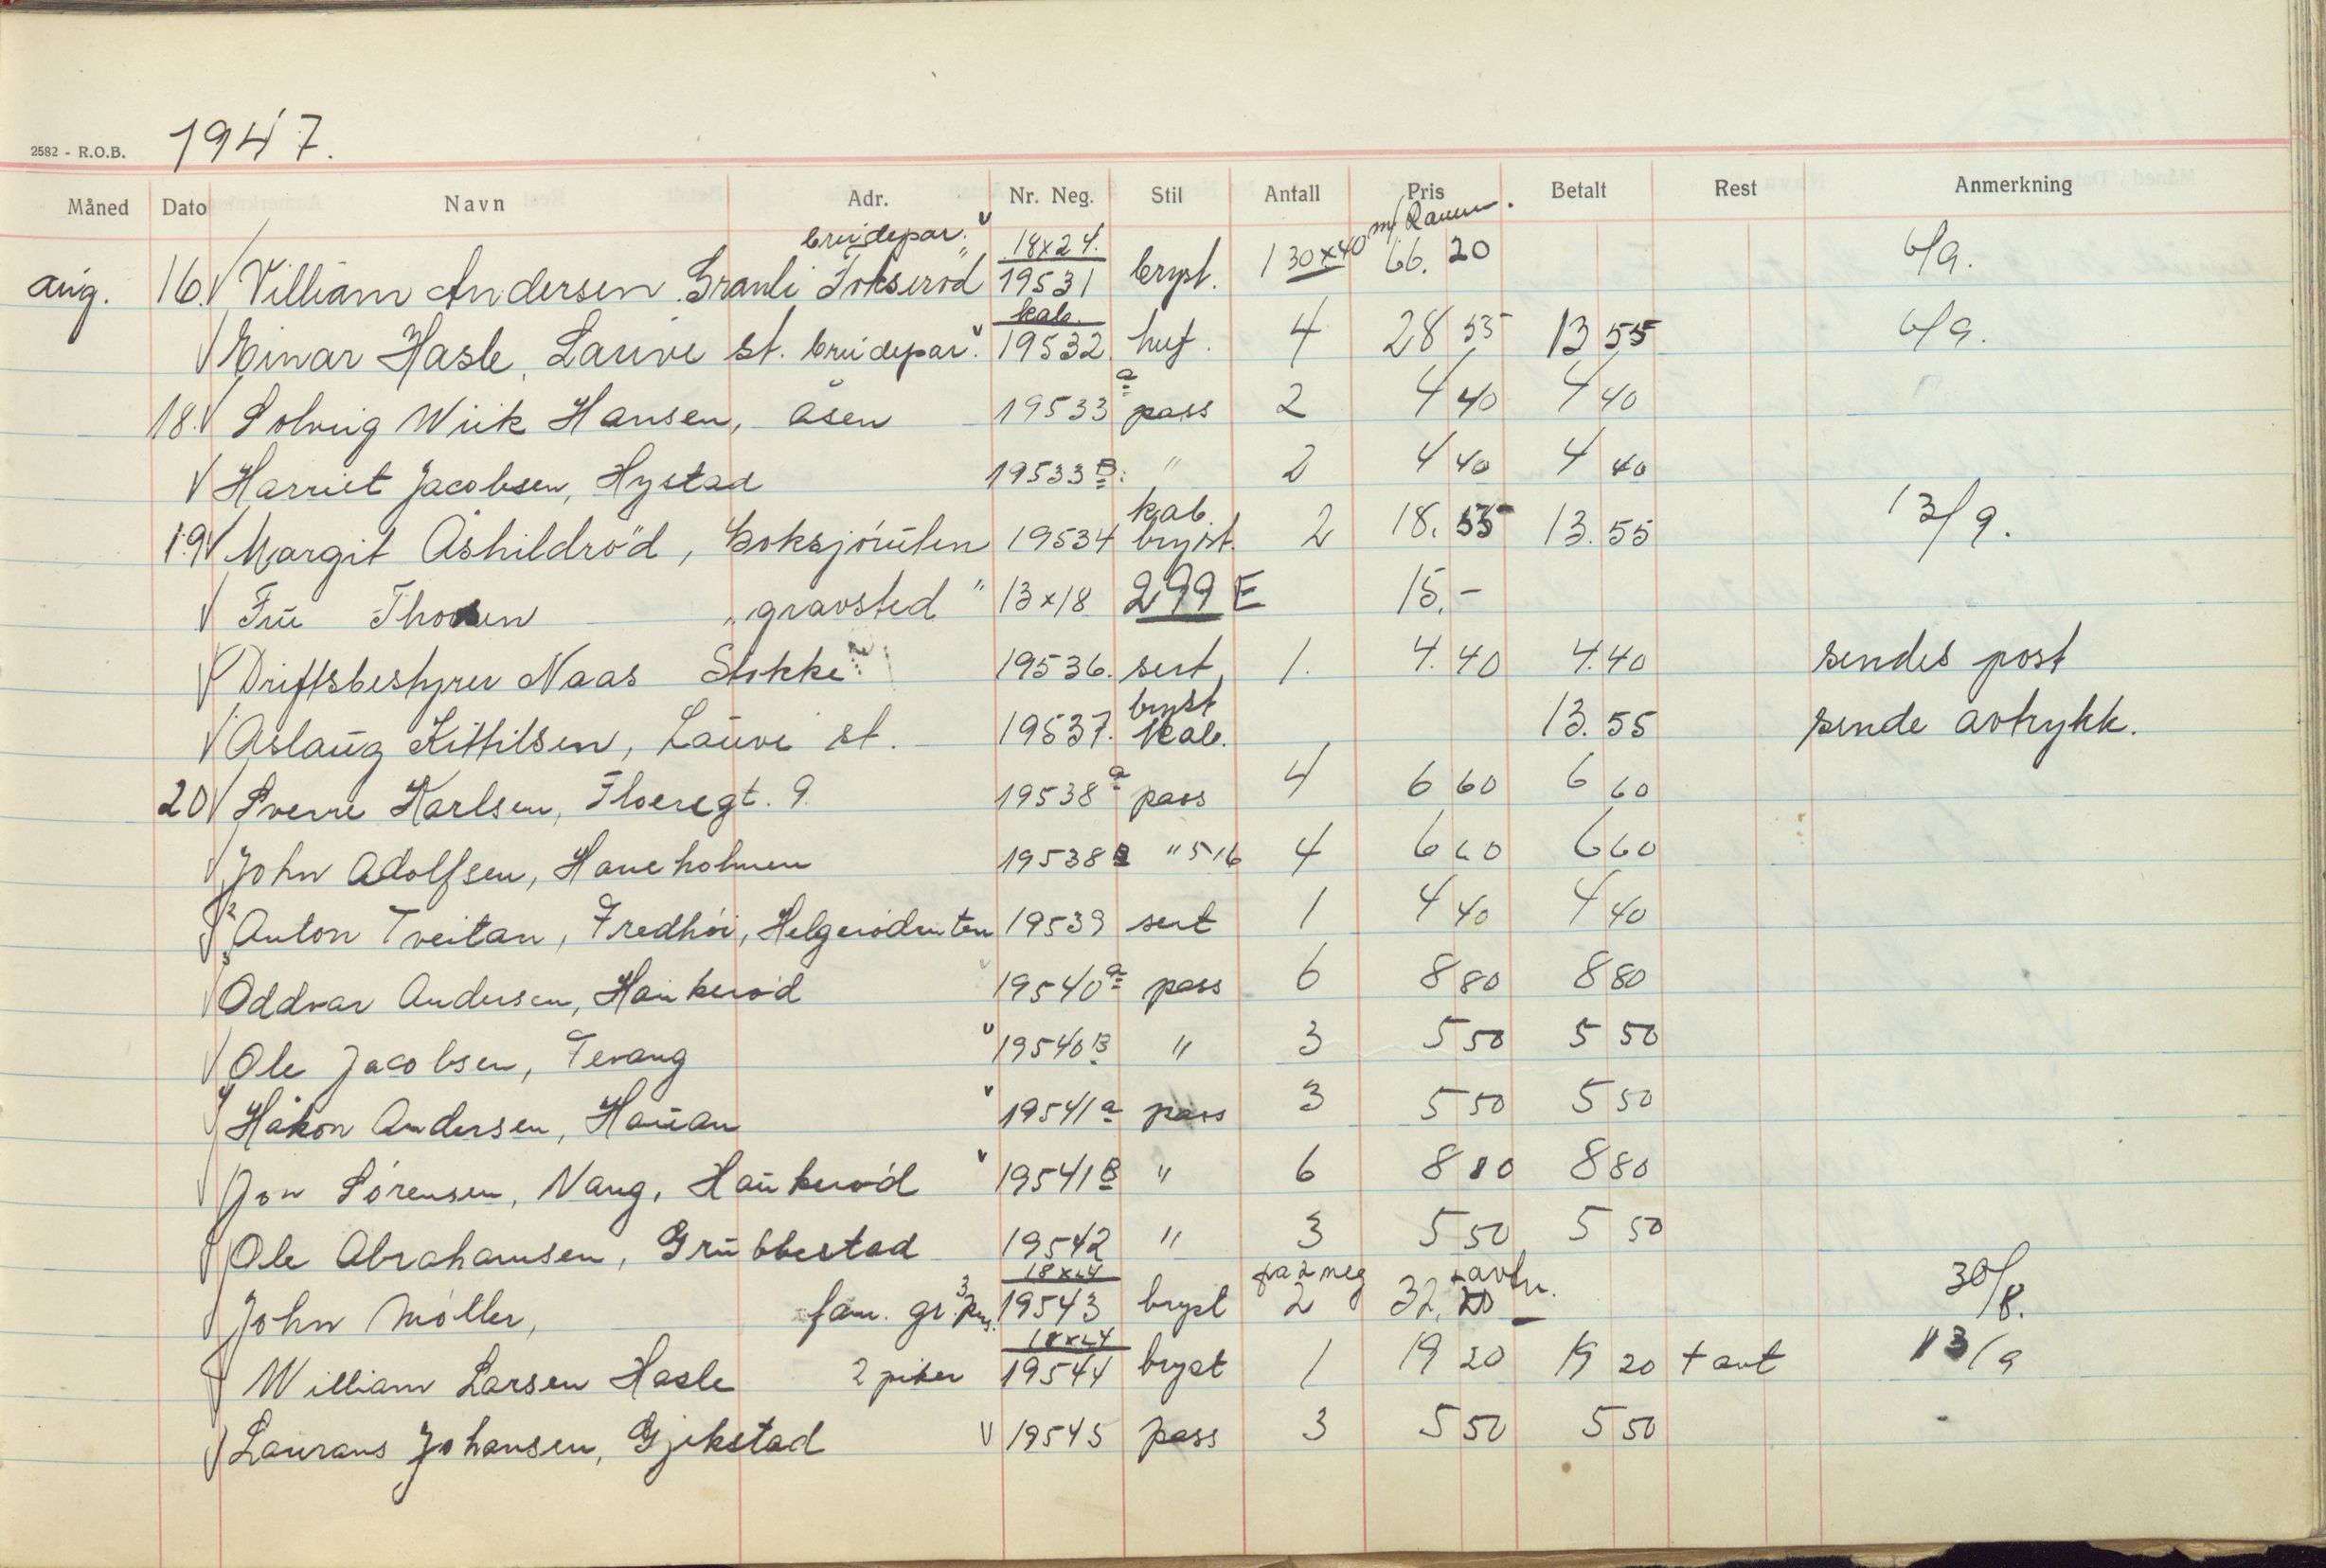 1947.
2582 - R.O.B.
Måned Dato Navn Adr. Nr. Neg. Stil Antall Pris Betalt Rest Anmerkning
brudepar. 18x24. m/ Ramme.
aug. 16. Villiam Andersen Granli Fokserød 19531 bryst. 1 30x40 66. 20 6/9.
kab.
Einar Hasle, Lauve st. brudepar. 19532 huf. 4 28 55 13 55 6/9.
18. Solveig Wiik Hansen, åsen 19533 a pass 2 4 40 4 40
Harriet Jacobsen, Hystad 19533 B. " 2 4 40 4 40
kab.
19 Margit Åshildrød, Goksjøruten 19534 bryst. 2 18. 55 13. 55 13/9.
Fru Thorsen "gravsted" 13x18 299 E 15.-
Driftsbestyrer Naas Stokke 19536. sert. 1. 4. 40 4. 40 sendes post
bryst
Aslaug Kittilsen, Lauve st. 19537. kab. 13. 55 sende avtrykk.
20 Sverre Karlsen, Floeresgt. 9. 19538 a pass 4 6 60 6 60
John Adolfsen, Haneholmen 19538 B " 5/6 4 6 60 6 60
Anton Tveitan, Fredhøi, Helgerødruten 19539 sert 1 4 40 4 40
Oddvar Andersen, Haukerød 19540 a pass 6 8 80 8 80
Ole Jacobsen, Tevang 19540 B " 3 5 50 5 50
Håkon Andersen, Hauan 19541 a pass 3 5 50 5 50
Jon Sørensen, Vang, Haukerød 19541 B " 6 8 80 8 80
Ole Abrahamsen, Grubbestad 19542 " 3 5 50 5 50
18x24 fra 2 neg + avtr.
John Møller, fam. gr. 3 pers. 19543 bryst 2 32. 20 30/8.
18x24
William Larsen Hasle 2 piker 19544 bryst 1 19 20 19 20 + avt 13/9
Laurans Johansen, Gjekstad 19545 pass 3 5 50 5 50